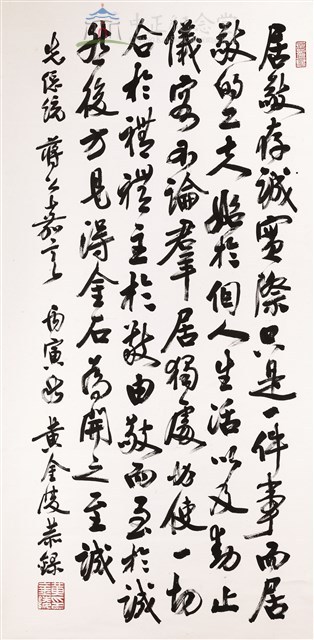 居敬存誠實際只是一件事而居
敬的工夫始於個人生活以及動止
儀容不論羣居獨處必使一切
合於禮禮主於敬由敬而至於誠
然後方見得金石為開之至誠
先總統 蔣公嘉言 丙寅 黃金陵恭錄
中正紀念堂